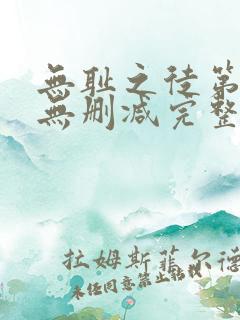 無耻之徒第
無删减完整
拉姆斯菲尔德
未经同意禁止转载